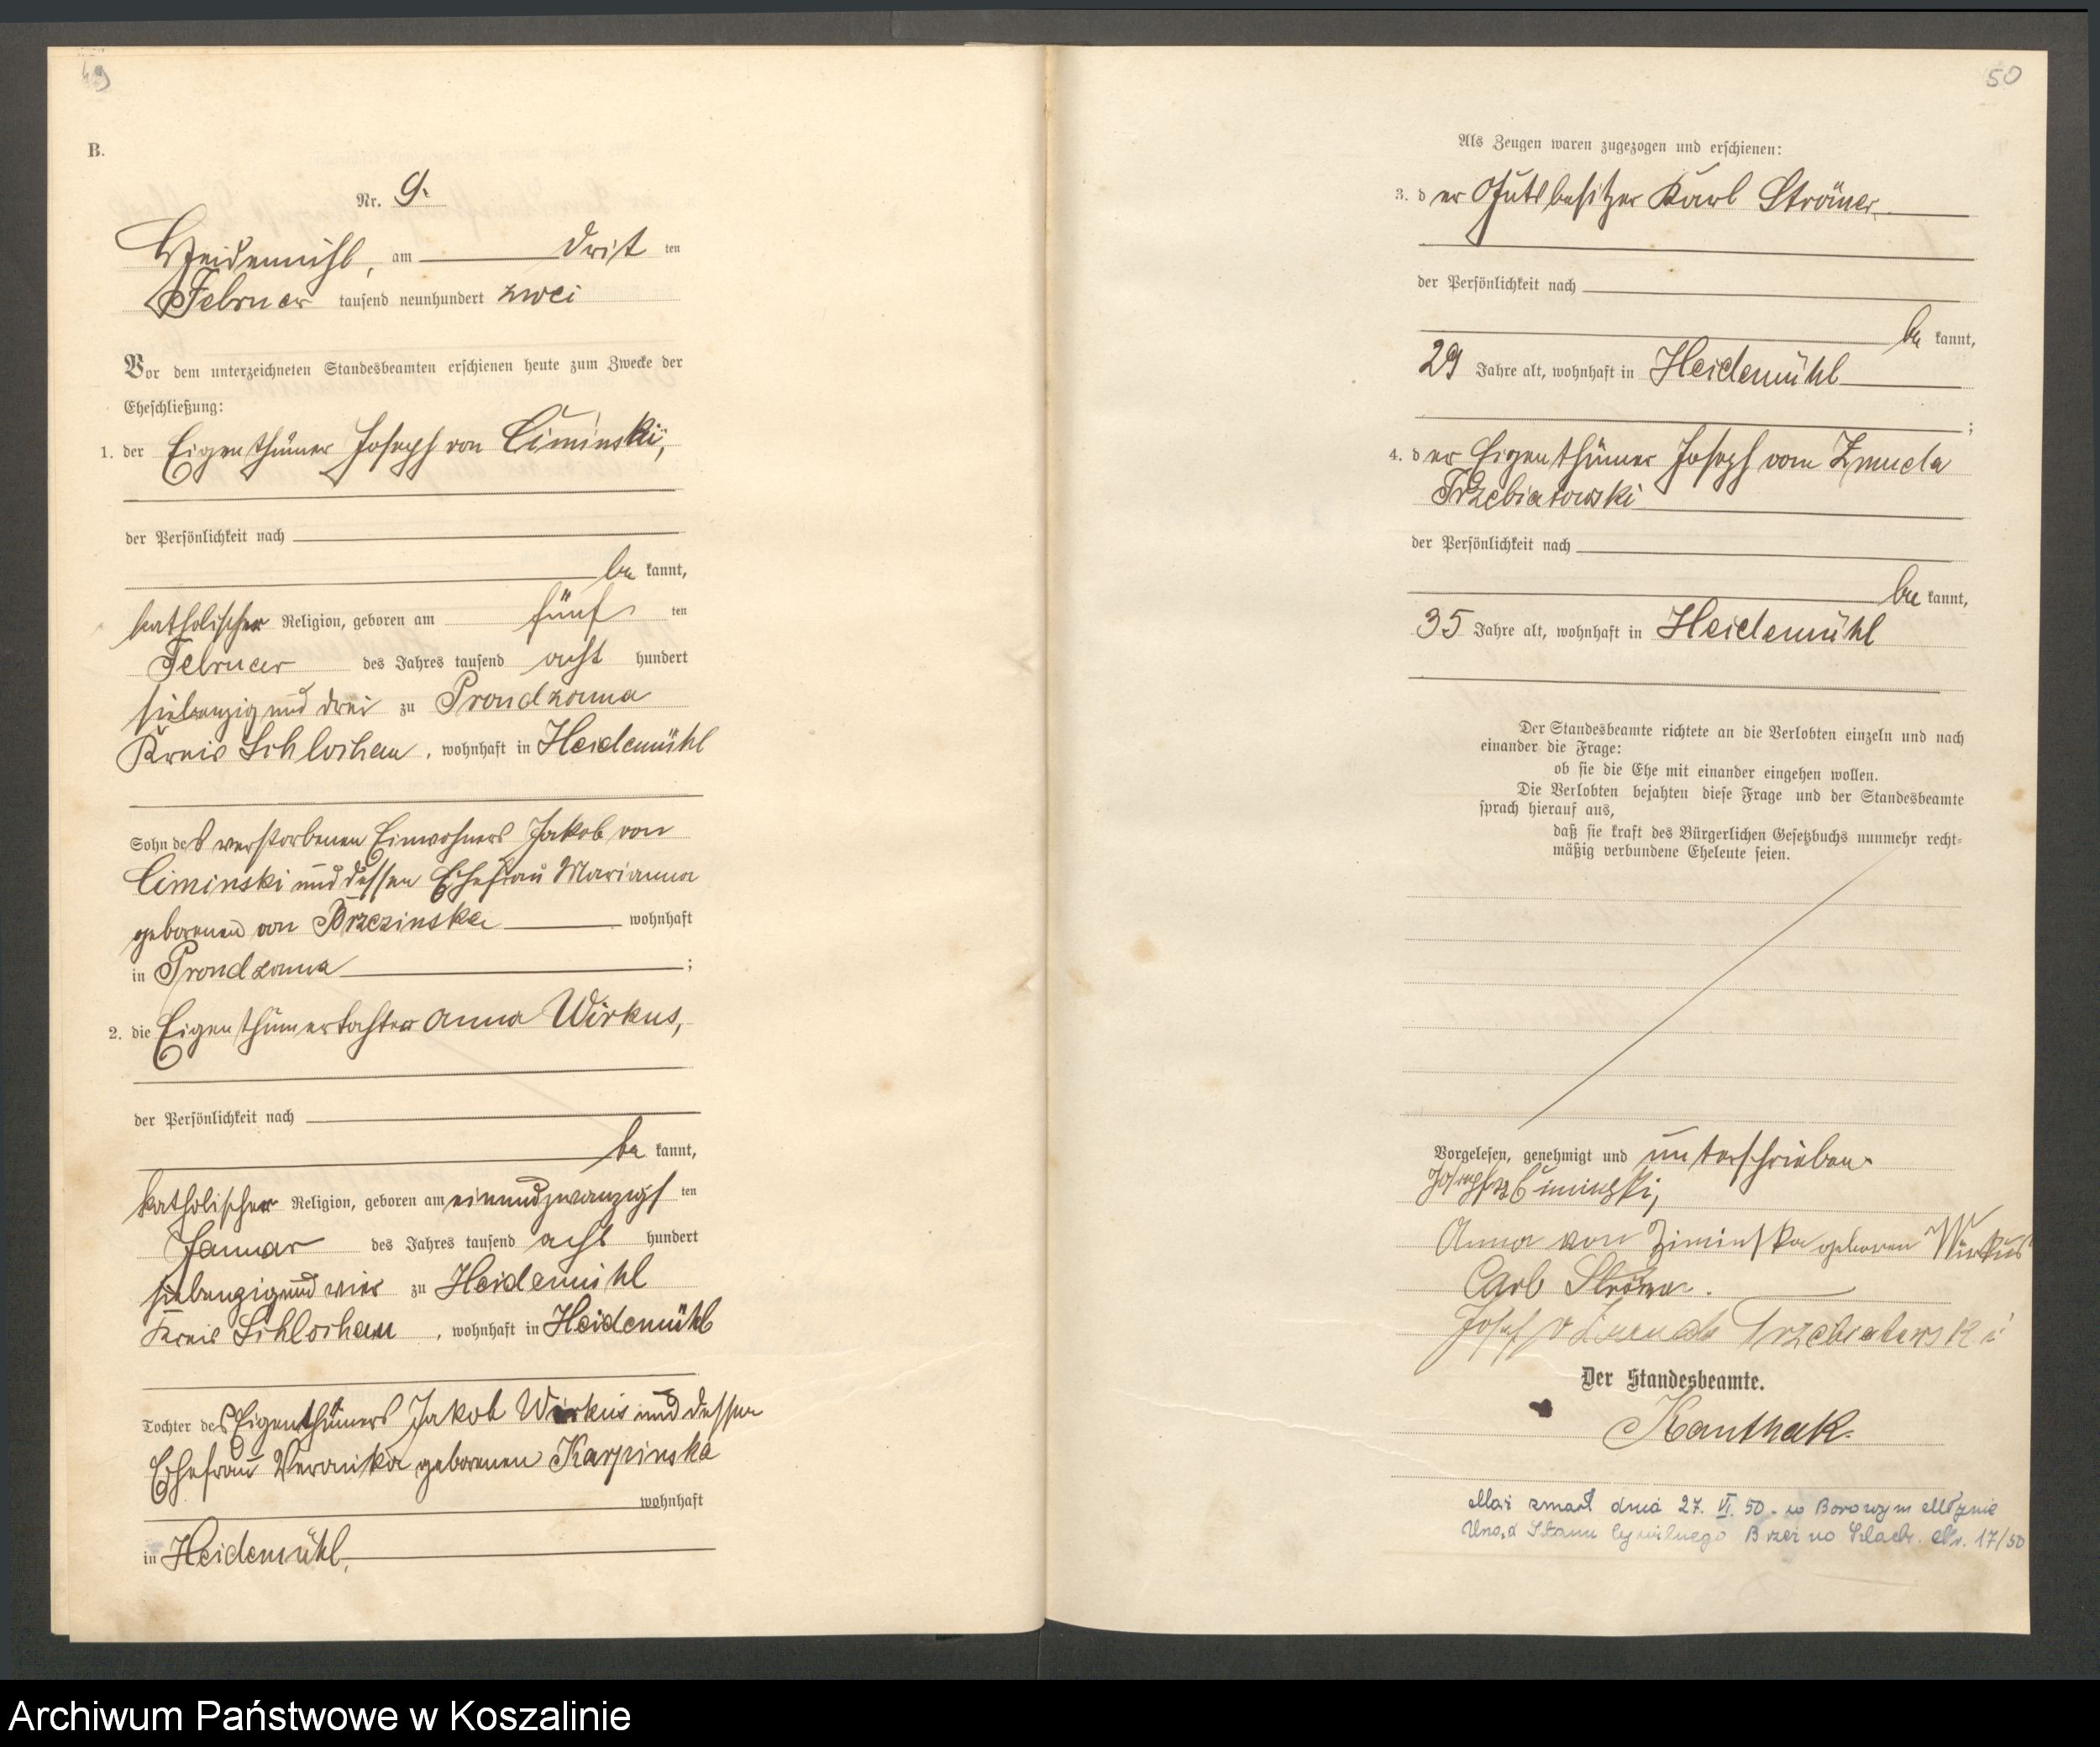 49
B.
Nr. 9.
Heidemühl, am drit ten
Februar tausend neunhundert zwei
Vor dem unterzeichneten Standesbeamten erschienen heute zum Zwecke der
Eheschließung:
1. der Eigenthümer Joseph von Ciminski,
der Persönlichkeit nach
be kannt,
katholischer Religion, geboren am fünf ten
Februar des Jahres tausend acht hundert
siebenzig und drei zu Prondzonna
Kreis Schlochau, wohnhaft in Heidemühl
Sohn des verstorbenen Einwohners Jakob von
Ciminski und dessen Ehefrau Marianna
geborenen von Brzezinska wohnhaft
in Prondzonna ;
2. die Eigenthümertochter Anna Wirkus,
der Persönlichkeit nach
be kannt,
katholischer Religion, geboren am einundzwanzigs ten
Januar des Jahres tausend acht hundert
siebenzig und vier zu Heidemühl
Kreis Schlochau, wohnhaft in Heidemühl
Tochter des Eigenthümers Jakob Wirkus und dessen
Ehefrau Veronika geborenen Karpinska
wohnhaft
in Heidemühl.
50
Als Zeugen waren zugezogen und erschienen:
3. der Gutsbesitzer Karl Ströner
der Persönlichkeit nach
be kannt,
29 Jahre alt, wohnhaft in Heidemühl
;
4. der Eigenthümer Joseph von Zmuda
Trzebiatowski
der Persönlichkeit nach
be kannt,
35 Jahre alt, wohnhaft in Heidemühl
Der Standesbeamte richtete an die Verlobten einzeln und nach
einander die Frage:
ob sie die Ehe mit einander eingehen wollen.
Die Verlobten bejahten diese Frage und der Standesbeamte
sprach hierauf aus,
daß sie kraft des Bürgerlichen Gesetzbuchs nunmehr recht-
mäßig verbundene Eheleute seien.
Vorgelesen, genehmigt und unterschrieben.
Joseph v Ciminski,
Anna von Ziminska geboren Wirkus
Carl Ströner.
Josef v Zmuda Trzebiatowski
Der Standesbeamte.
Kanthak.
Mąż zmarł dnia 27. VI. 50. w Borowym Młynie
Urząd Stanu Cywilnego Brzeźno Szlach. Nr. 17/50
Archiwum Państwowe w Koszalinie